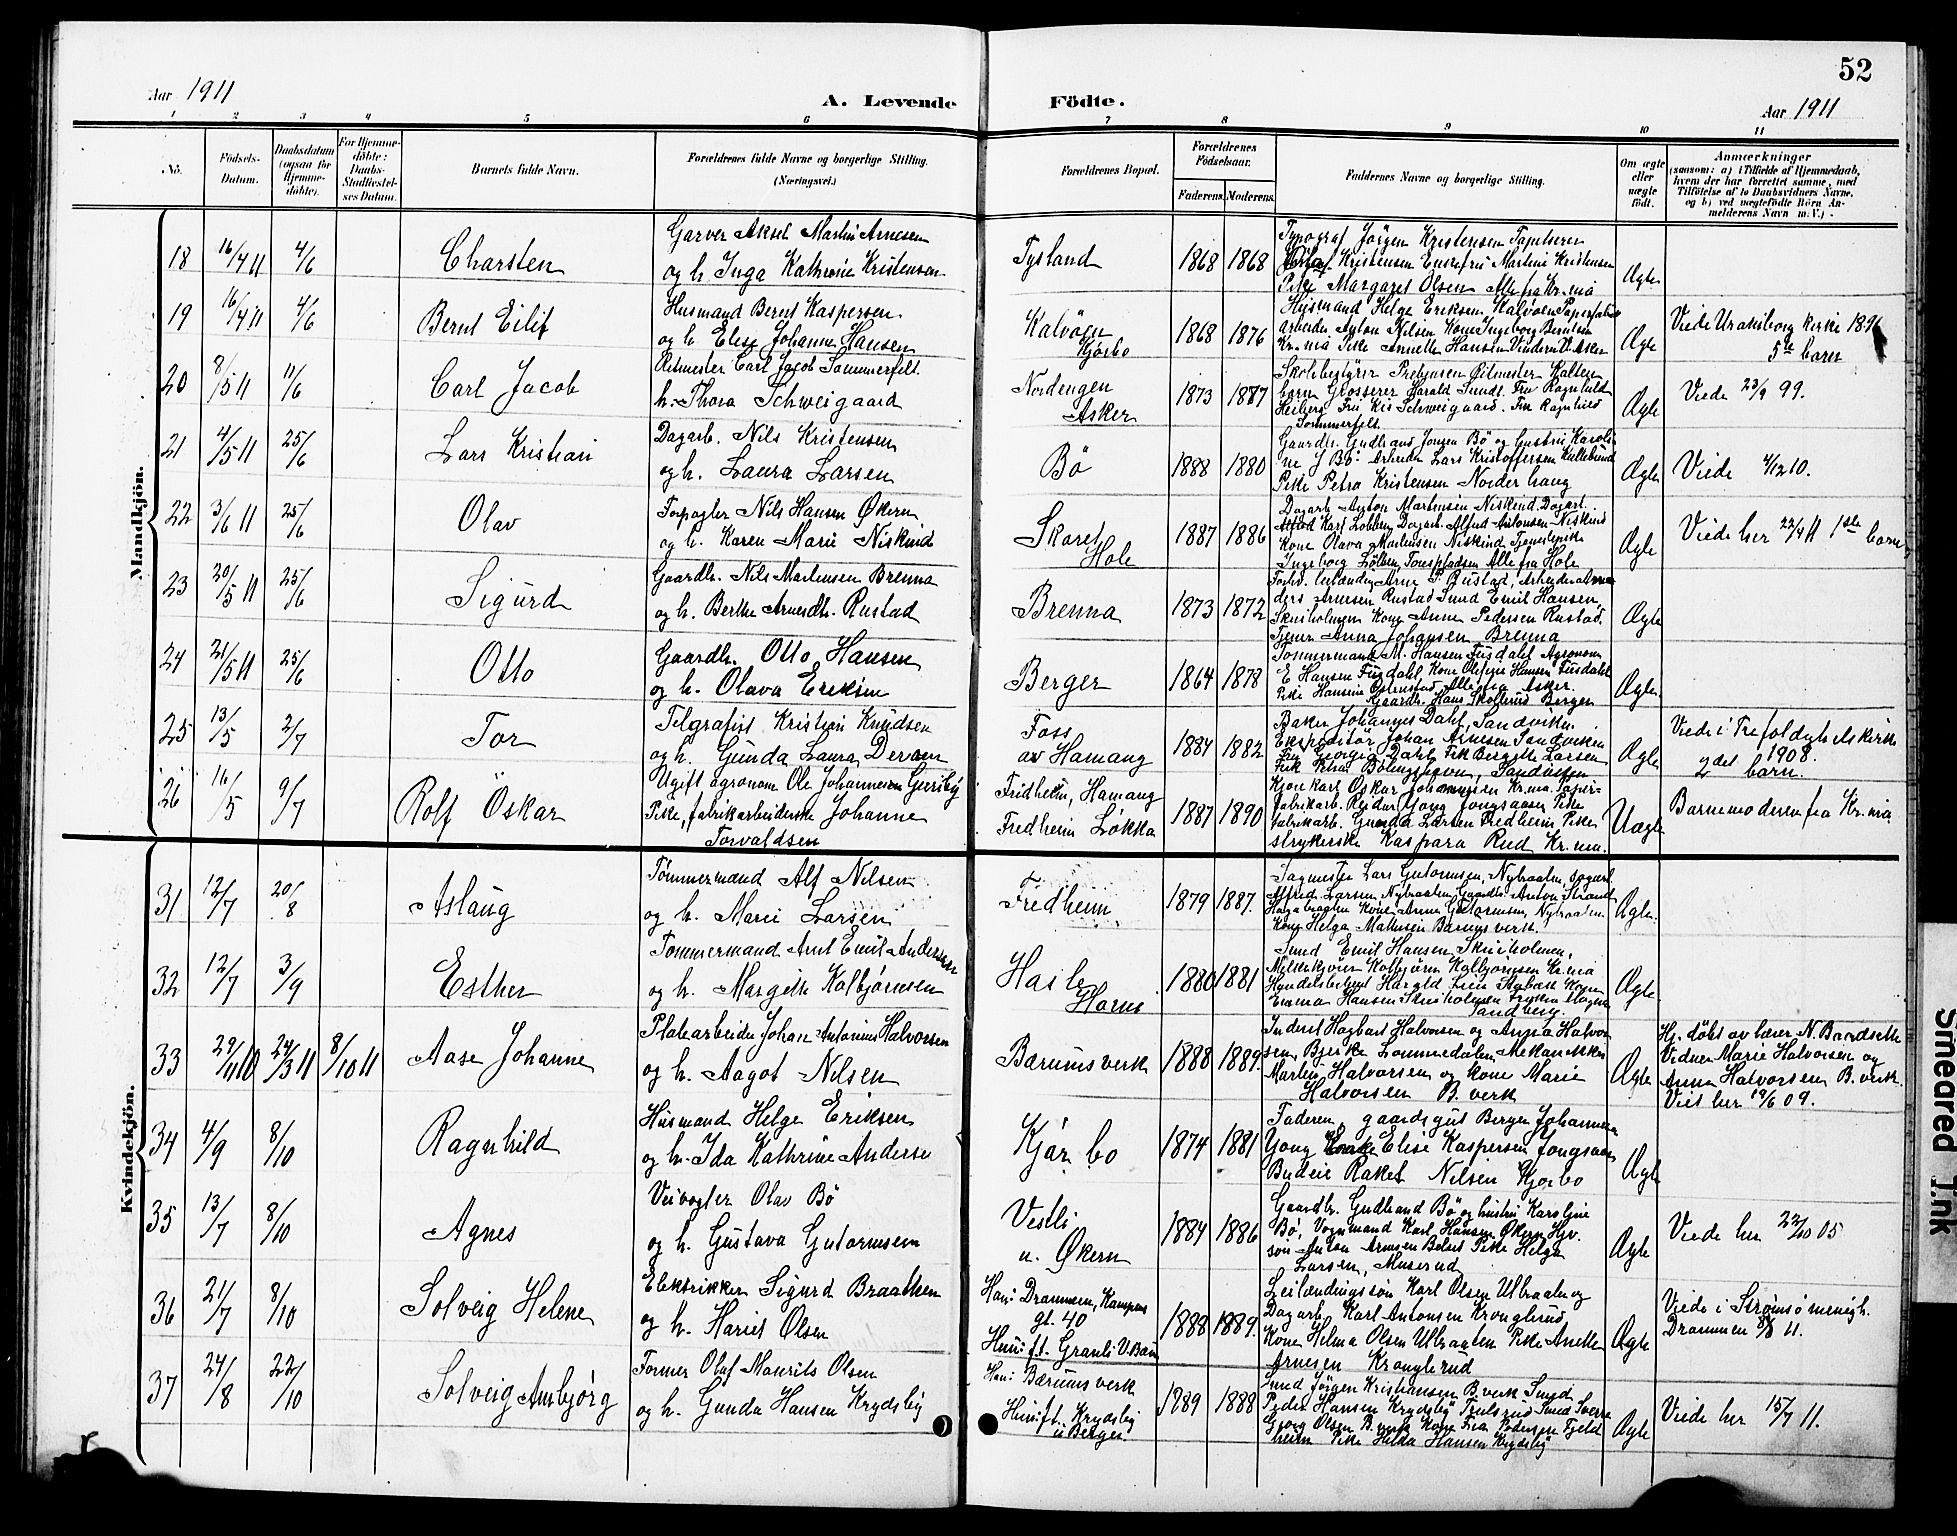 52
Aar 1911
A. Levende Födte.
Aar 1911
1 2 3 4 5 6 7 8 9 10 11
No.
Födsels-Datum.
Daabsdatum (ogsaa for Hjemme-döbte).
For Hjemme-döbte: Daabs-Stadfæstel-ses Datum.
Barnets fulde Navn.
Forældrenes fulde Navne og borgerlige Stilling. (Næringsvei.)
Forældrenes Bopæl.
Forældrenes Födselsaar.
Faderens. Moderens.
Faddernes Navne og borgerlige Stilling.
Om ægte eller uægte födt.
Anmærkninger
(saasom: a) i Tilfælde af Hjemmedaab,
hvem der har forrettet samme, med
Tilföielse af to Daabsvidners Navne,
og b) ved uægtefödte Börn An-
melderens Navn m. V.) -
Mandkjön.
18 16/4 11 4/6 Charsten
Garver Aksel Martin Arnesen
og h. Inga Kathrine Kristensen
Tysland 1868 1868
Typograf Jörgen Kristensen Tapetserer
Kristensen Enkefru Martine Kristensen
Pike Margaret Olsen Alle fra Kr.ma
Ægte
19 16/4 11 4/6 Bernt Eilif
Husmand Bernt Kaspersen
og h. Elise Johanne Hansen
Kalvöen
Kjørbo
1868 1876
Husmand Helge Eriksen Kalvöen Papirfabrik
arbeider Anton Nilsen Kone Ingeborg Berntsen
Kr.ma Pike Annette Hansen Vinderen V. Aker
Ægte
Viede Uranienborg kirke 1896
5te barn
20 8/5 11 11/6 Carl Jacob
Ritmester Carl Jacob Sommerfelt
h. Thora Schweigaard
Nordengen
Asker
1873 1877
Skolebestyrer Prebensen Ritmester Kalten
born Grosserer Harald Sundt Fru Ragnhild
Heiberg Fru Kis Schweigaard. Frk Ragnhild
Sommerfelt
Ægte
Viede 23/9 99.
21 4/5 11 25/6 Lars Kristian
Dagarb. Nils Kristensen
og h. Laura Larsen
Bö 1888 1880
Gaardb. Gudbrand Jonsen Bö og hustru Karoli-
ne J Bö. Arbeider Lars Kristoffersen Kullebund
Pike Petra Kristensen Norderhaug
Ægte
Viede 4/12 10.
22 3/6 11 25/6 Olav
Forpagter Nils Hansen Økern
og h. Karen Marie Niskind
Skaret
Hole
1887 1886
Dagarb Anton Martensen Niskind Dagarb.
Karl Lobben Dagarb. Alfred Antonsen Niskind
Kone Olava Martensen Niskind Tjenestepike
Ingeborg Lobben Alle fra Hole
Ægte
Viede her 22/4 11 1ste barn
23 20/5 11 25/6 Sigurd
Gaardb. Nils Martensen Brenna
og h. Berthe Arnesdtr. Rustad
Brenna 1873 1872
Forhv. leilænding Arne P. Rustad, Arbeider An-
ders Arnesen Rustad Smed Emil Hansen
Skuiholmen Kone Anne Pedersen Rustad.
Tjener Anna Johansen Brenna
Ægte
24 21/5 11 25/6 Otto
Gaardb. Otto Hansen
og h. Olava Eriksen
Berger 1864 1878
Tømmermand M. Hansen Fusdahl Agronom
E Hansen Fusdahl, Kone Oline Hansen Fusdahl
Pike Hansine Østenstad Alle fra Asker.
Gaardb. Hans Skollerud Berger
Ægte
25 13/5 2/7 Tor
Telgrafist Kristian Knudsen
og h. Gunda Laura Dervan
Foss
av Hamang
1884 1882
Baker Johannes Dahl, Sandviken
Ekspeditör Johan Arnesen Sandviken
Fru Georgia Dahl Frk Bergitte Larsen
Frk Sandviken
Ægte
Viede i Trefoldighetskirke
1908.
2det barn.
26 16/5 9/7 Rolf Oskar
Ugift agronom Ole Johannesen
Pike, fabrikarbeiderske Johanne
Torvaldsen
Fridheim, Hamang
Fredheim Løkka
1887 1890
Karl Oskar Johannesen Kr.ma. Papir-
fabrikarb. Reidar Yong Jongsaasen Pike
fabrikarb. Gunda Larsen Fredheim Pike
strykerske Kaspara Rud Kr.ma.
Uægte
Barnemoderen fra Kr.ma
Kvindekjön.
31 12/7 20/8 Aslaug
Tømmermand Alf Nilsen
og h. Marie Larsen
Fredheim 1879 1887.
Sagmester Lars Gutormsen, Nybraaten,
Alfred Larsen Nybraaten, Gaardb. Anton Strand
Kone Anna Gutormsen, Nybraaten
Kone Helga Mathisen Bærums verk.
Ægte.
32 12/7 3/9 Esther
Tommermand Arnt Emil Andersen
og h. Margith Kolbjørnsen
Hasle
Horni
1880 1881
Smed Emil Hansen Skuiholmen,
Melkekjører Kolbjörn Kolbjörnsen Kr.ma
Handelsbetjent Harald Lien Stabæk Kone
Emma Hansen Skuiholmen Frøken Magna
Sandberg.
Ægte.
33 29/11 10 24/3 11 8/10 11 Aase Johanne
Platearbeider Johan Antonius Halvorsen
og h. Aagot Nilsen
Bærums verk 1888 1889.
Inderst Hagbart Halvorsen og Anna Halvor
sen Bjerke Lommedalen, Mekaniker
Martin Halvorsen og kone Marie
Halvorsen B. verk
Ægte
Hj. döbt av lærer N. Bardseth
Vidner Marie Halvorsen og
Anna Halvorsen B. verk.
Viet her 19/6 09.
34 4/9 8/10 Ragnhild
Husmand Helge Eriksen
og h. Ida Kathrine Anderse
Kjørbo 1874 1881
Faderen, gaardsgut Berger Johannessen
Yong Enke Elise Kaspersen Jongsaasen
Budeie Rakel Nilsen Kjørbo
Ægte
35 13/7 8/10 Agnes
Veivogter Olav Bö
og h. Gustava Gutormsen
Vestli
u. Økern
1884 1886
Gaardb. Gudbrand Bö og hustru Karoline
Bö, Vognmand Karl Hansen Økern Hjv.
søn Anton Arnesen Belset Pike Helga
Larsen, Muserud
Ægte
Viede her 22/10 05
36 21/7 8/10 Solveig Helene
Elektrikker Sigurd Braathen
og h. Hariet Olsen
Han: Drammen, Kampens
gt. 40
Hun: ft. Granli V. Bærum
1888 1889.
Leilændingssön Karl Olsen Ulbraaten og
Dagarb. Karl Antonsen Kronglerud,
Kone Helma Olsen Ulbraaten Pike Anette
Arnesen Kronglerud
Ægte
Viede i Strømsö menigh.
Drammen 5/8 11.
37 24/8 22/10 Solveig Ambjørg
Former Olaf Maurits Olsen
og h. Gunda Hansen Krydsby
Han: Bærums verk
Hun: ft. Krydsby
u Berger.
1889 1888
Smed Jörgen Kristiansen B. verk Smed
Peder Hansen Krydsby Smed Sverre
Georg Olsen B. verk Kone Fra Pedersen Fjeld
heim Pike Hilda Hansen Krydsby
Ægte
Viede her 15/7 11.
Smeared Ink